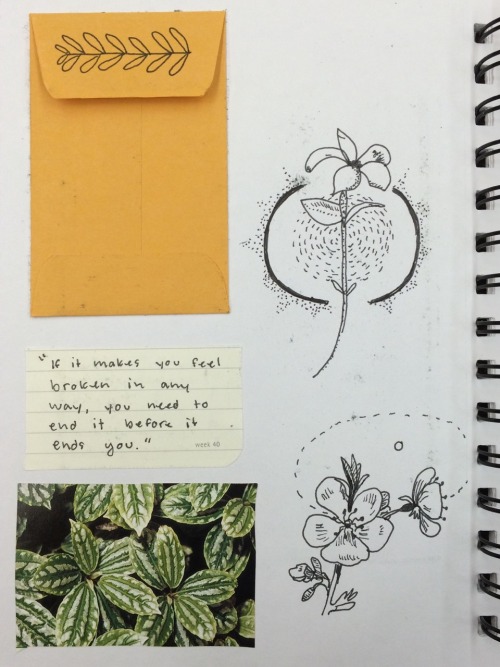 "If it makes you feel
broken in any
way, you need to
end it before it
ends you."
week 40